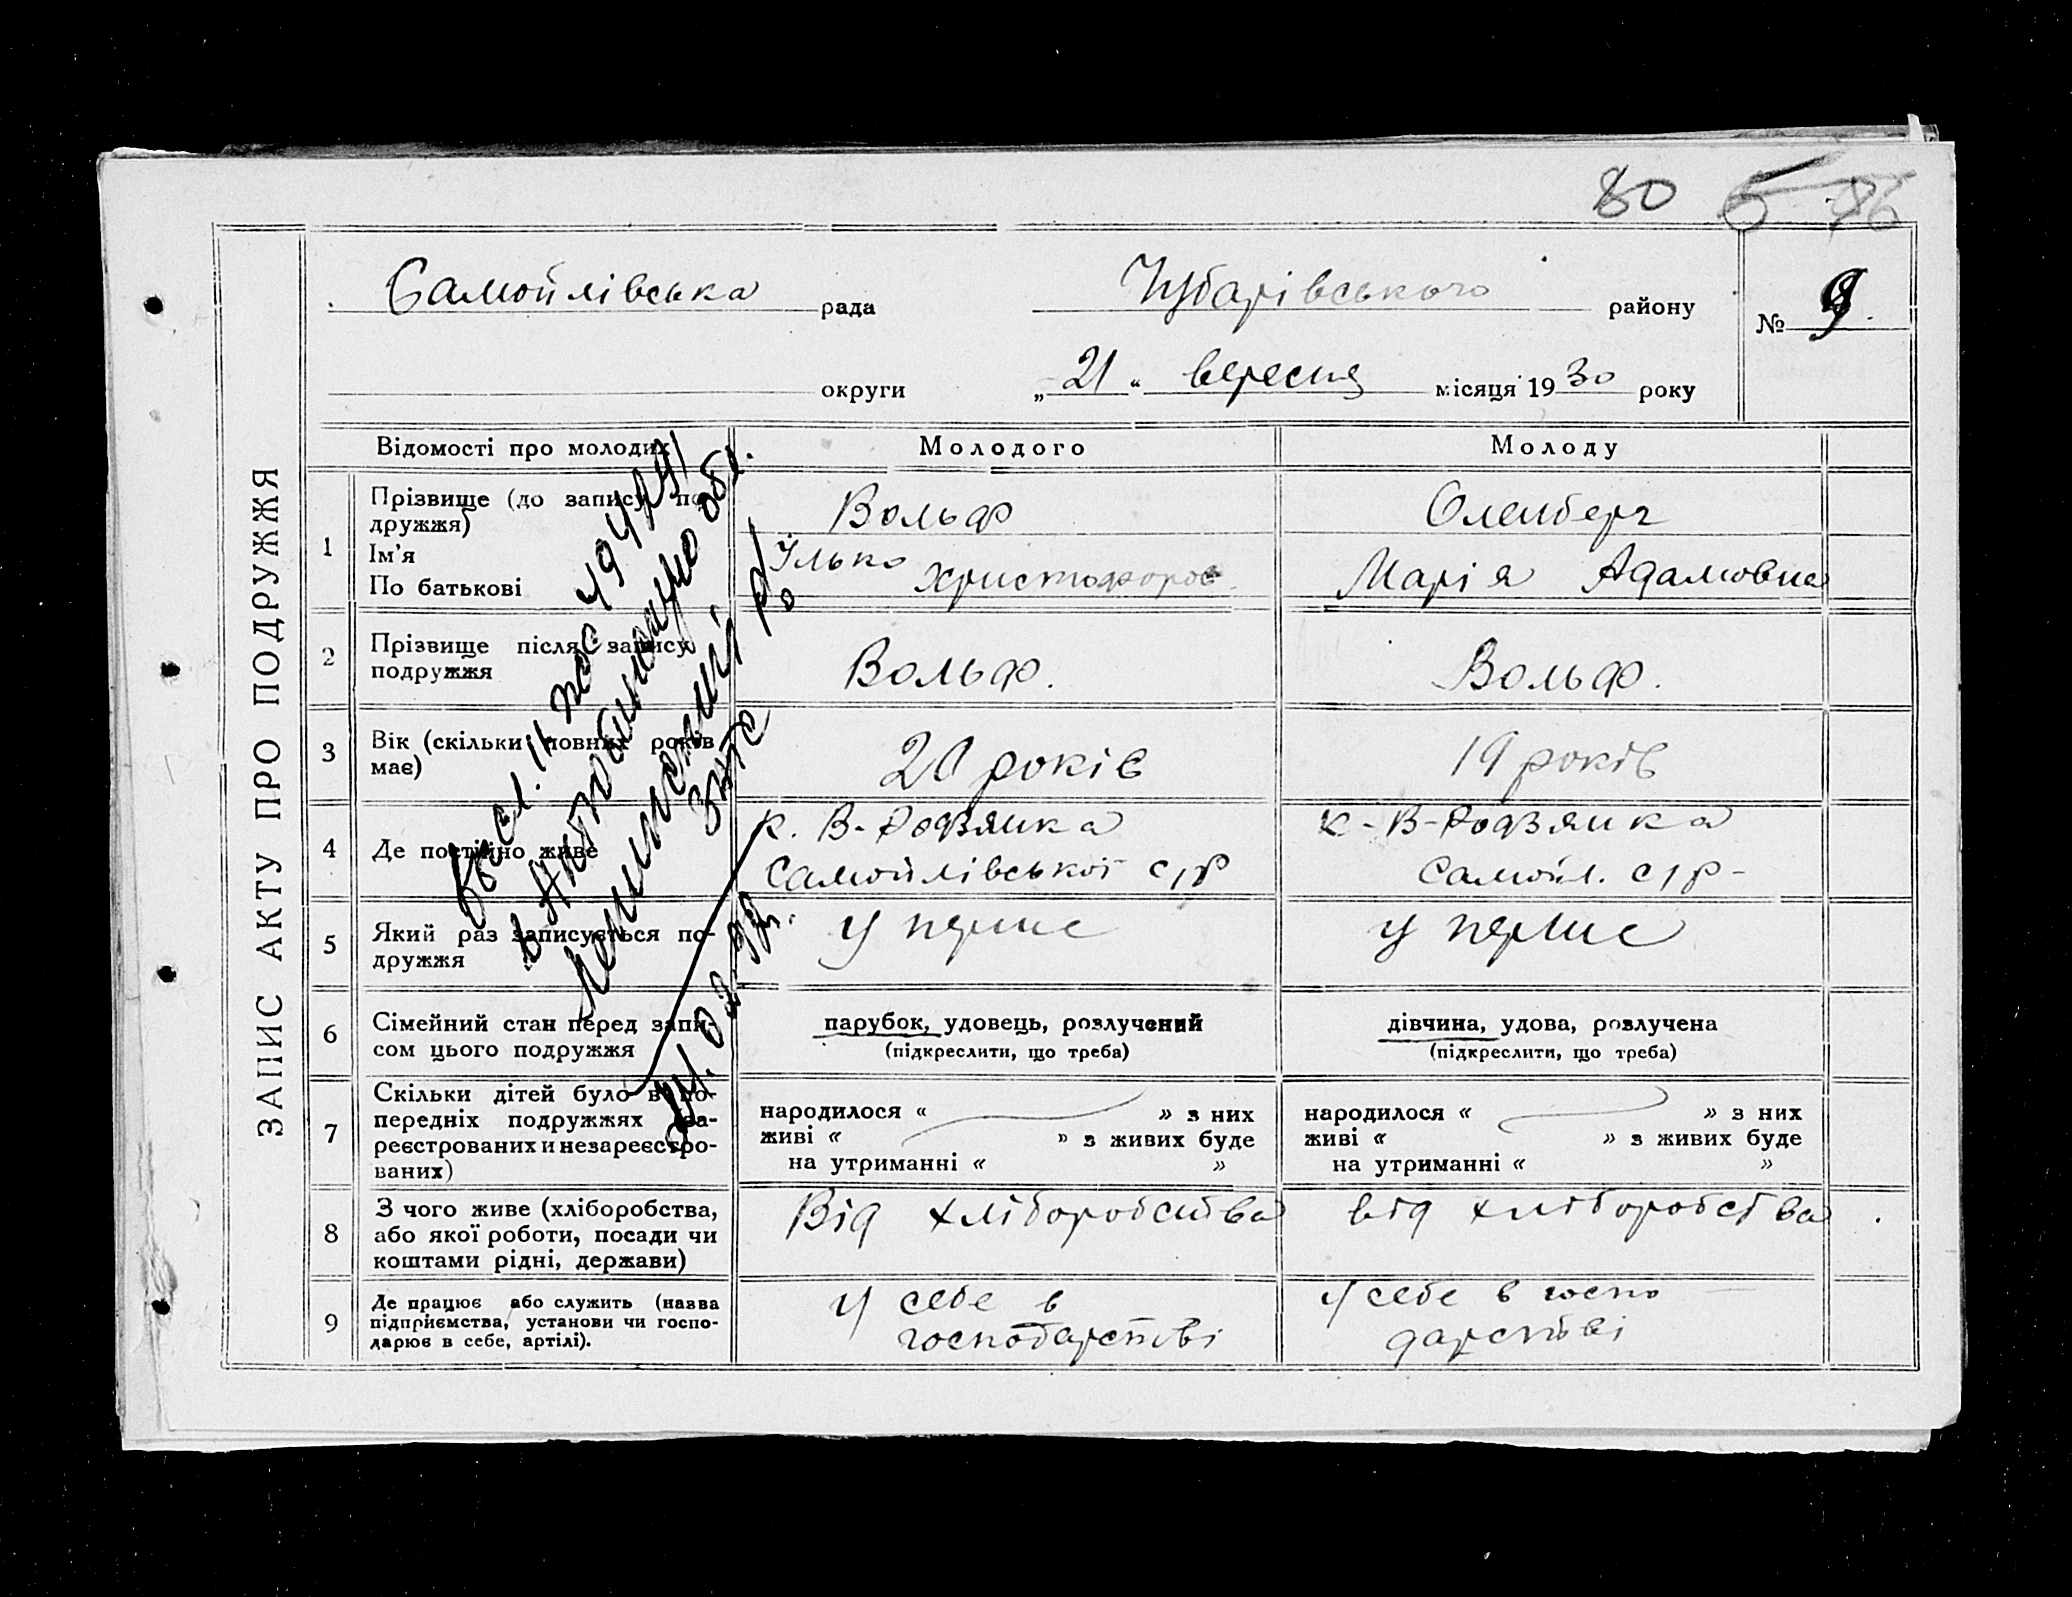 80 5 86
ЗАПИС АКТУ ПРО ПОДРУЖЖЯ
Самойлівська рада Чубарівського району № 9.
округи „21“ вересня місяця 1930 року
Відомості про молодих Молодого Молоду
1 Прізвище (до запису по-
дружжя) Вольф Оленберг
Ім'я
По батькові Ілько Христофоров Марія Адамовна
2 Прізвище після запису
подружжя Вольф. Вольф.
3 Вік (скільки повних років
має) 20 років 19 років
4 Де постійно живе к. В-Родзянка к-В-Родзянка
Самойлівської с/р Самойл. с/р-
5 Який раз записується по-
дружжя у перше у перше
6 Сімейний стан перед запи-
сом цього подружжя
парубок, удовець, розлучений дівчина, удова, розлучена
(підкреслити, що треба) (підкреслити, що треба)
7 Скільки дітей було в по-
передніх подружжях за-
реєстрованих и незареєстро-
ваних)
народилося « » з них народилося « » з них
живі « » з живих буде живі « » з живих буде
на утриманні « » на утриманні « »
8 З чого живе (хліборобства,
або якої роботи, посади чи
коштами рідні, держави)
Від хліборобства від хліборобства.
9 Де працює або служить (назва
підприємства, установи чи госпо-
дарює в себе, артілі).
У себе в у себе в госпо
господарстві дарстві
высл.
в Актюбинскую обл.
Ленинский р/
ЗАГС